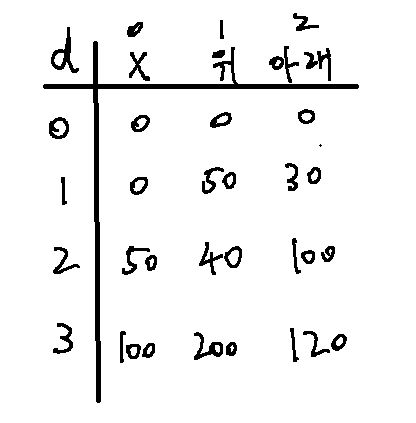 0 1 2
d X 위 아래
0 0 0 0
1 0 50 30
2 50 40 100
3 100 200 120